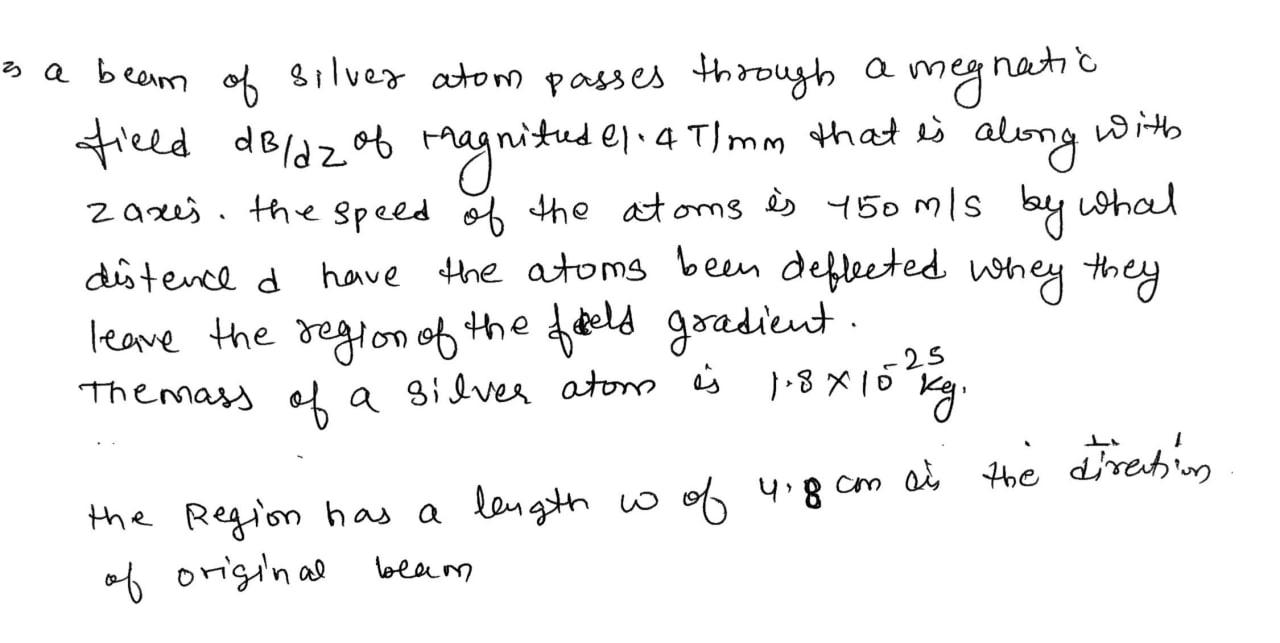 a beam of silver atom passes through a megnatic
field dB/dz of magnitude 1.4 T/mm that is along with
z axeis. the speed of the atoms is 750 m/s by whal
distence d have the atoms been deflected whey they
leave the region of the field gradient.
The mass of a silver atom is 1.8 × 10⁻²⁵ kg.
the Region has a length w of 4.8 cm ai the direction
of original beam